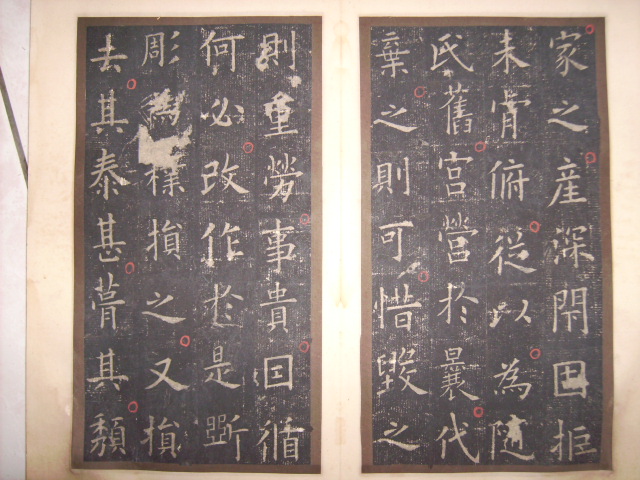 家之産深閇固拒
未肯俯從以為隨
氏舊宮營於曩代
棄之則可惜毀之
則重勞事貴因循
何必改作於是斲
彫為樸損之又損
去其泰甚葺其頹